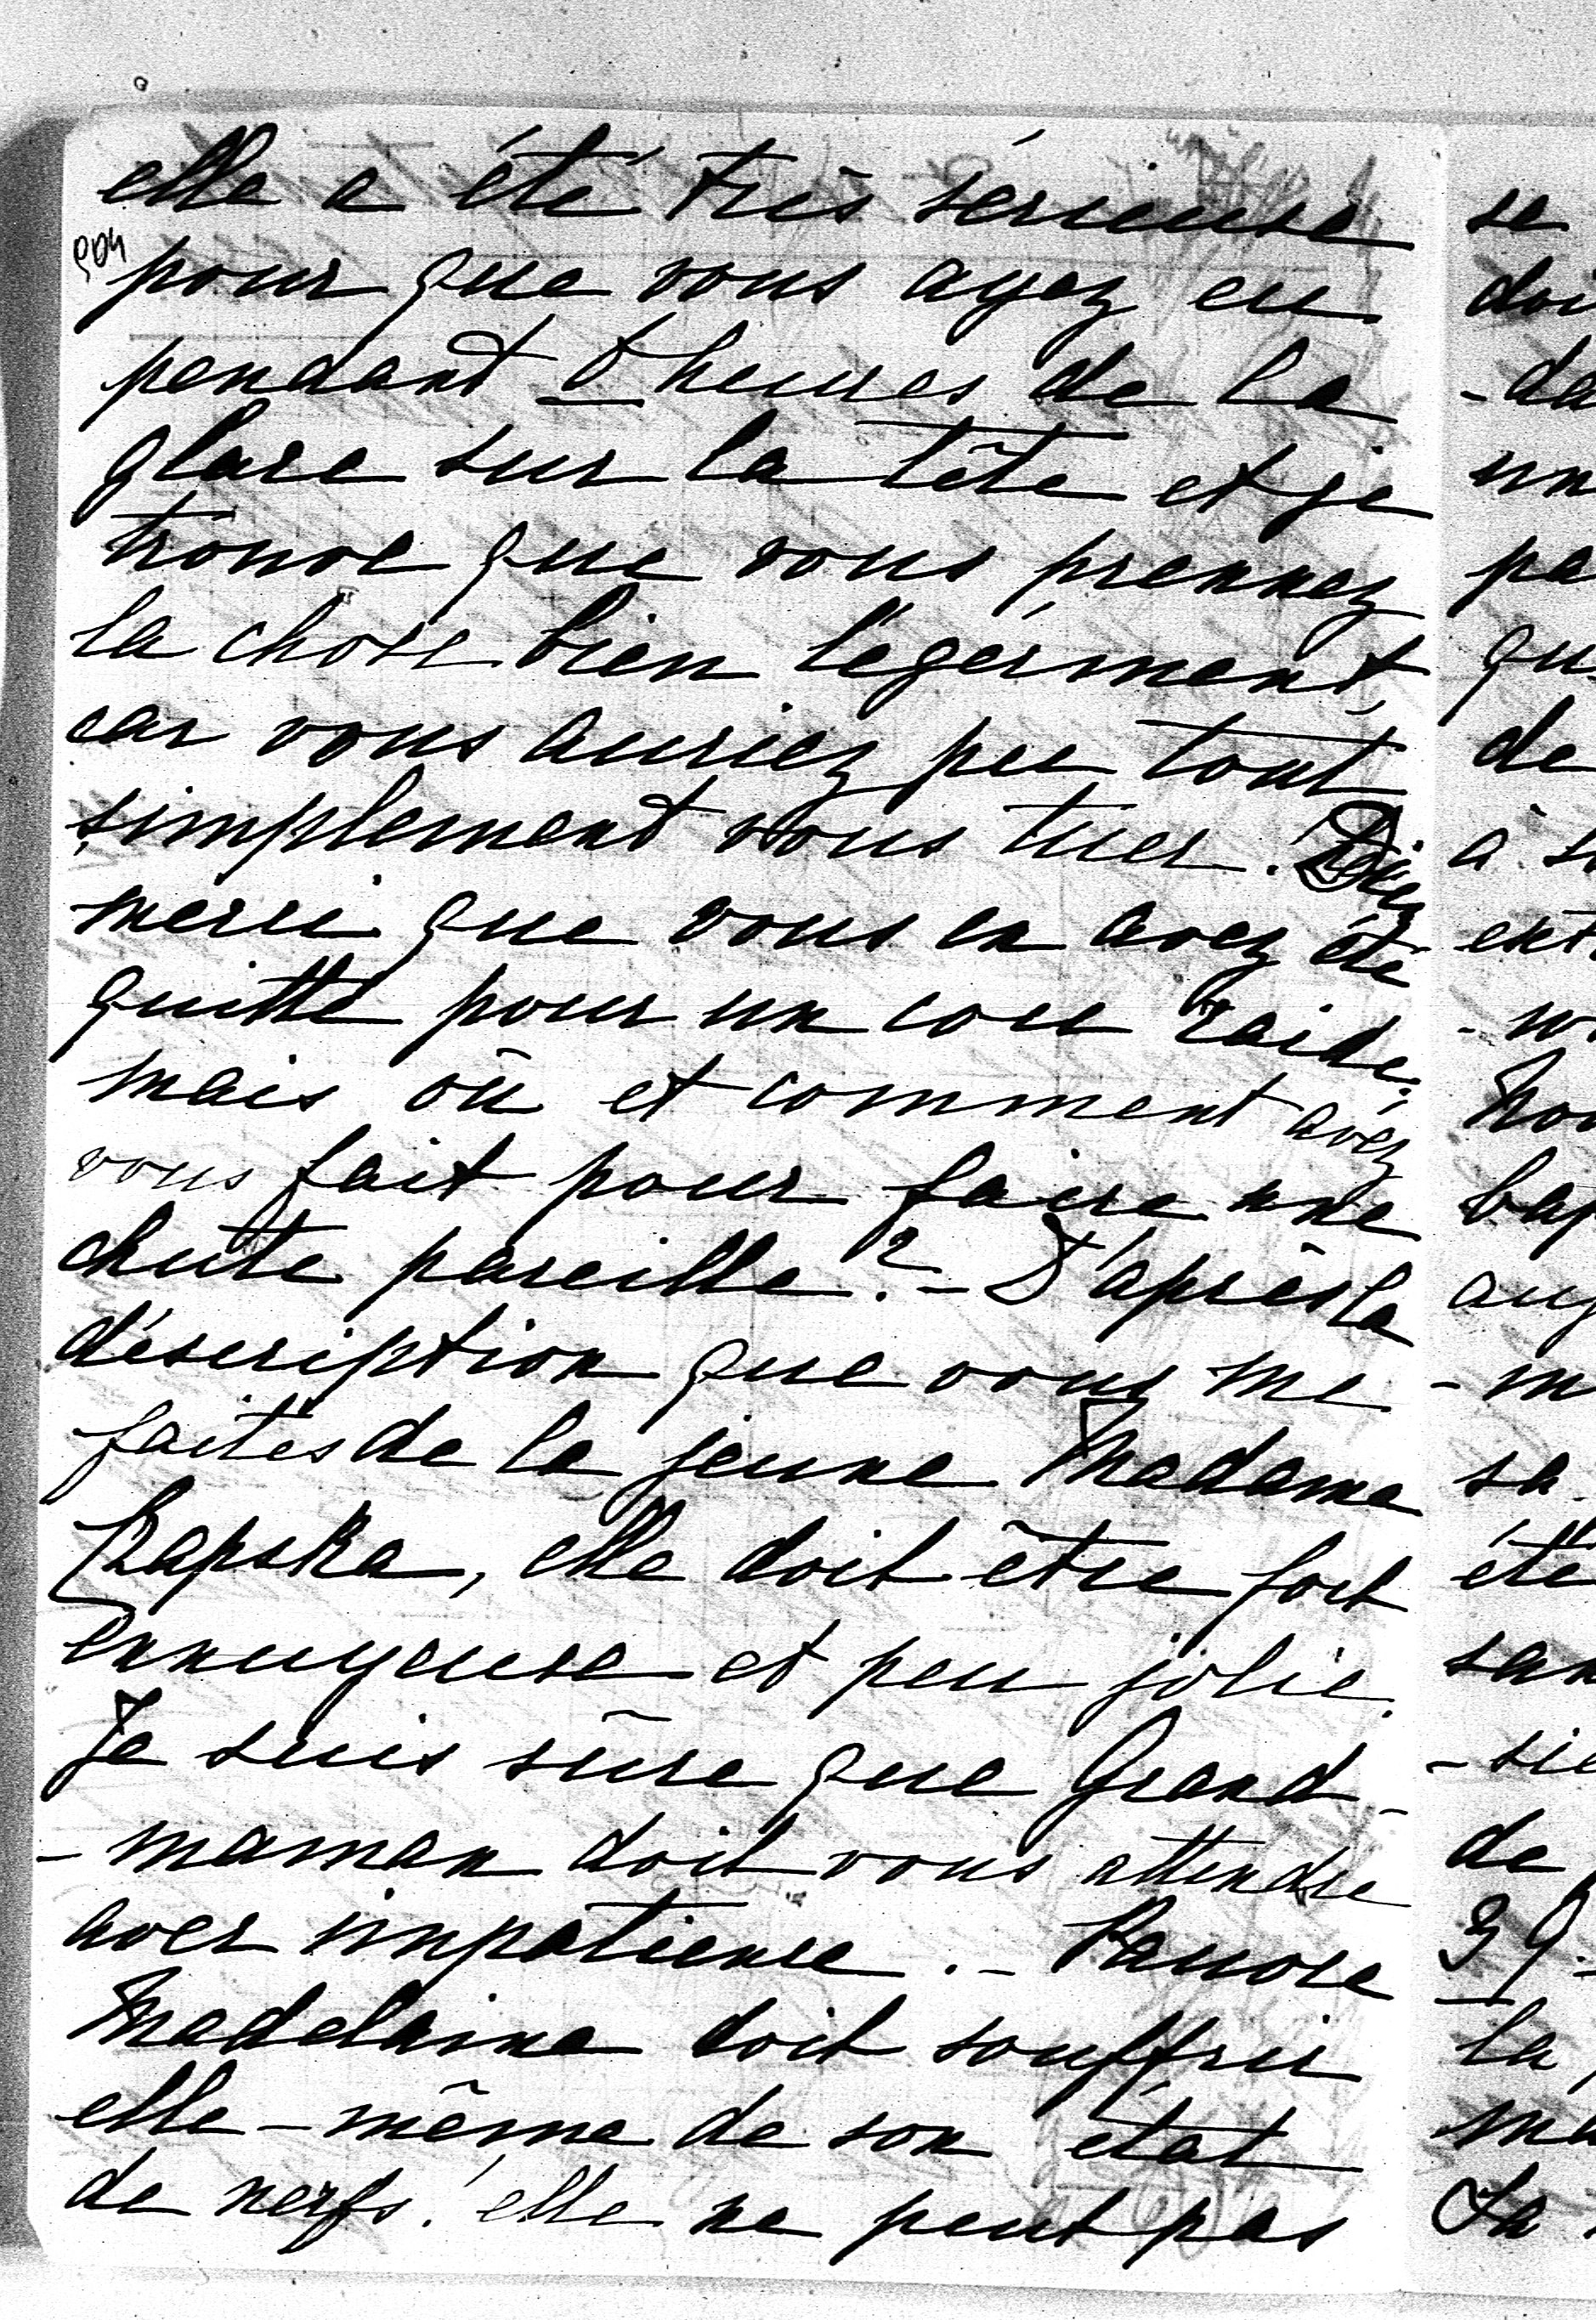 elle a été très sérieuse
pour que vous ayez eu
pendant 6 heures de la
glace sur la tête et je
trouve que vous prennez
la chose bien légérment,
car vous auriez pu tout
simplement vous tuer! Dieu
merci que vous en avez été
quitte pour un cou raide!
mais où et comment avez
vous fait pour faire une
chute pareille? – D'après la
déscription que vous me
faites de la jeune Madame
elle doit être fort
ennuyeuse et peu jolie.
Je suis sûre que Grand-
-maman doit vous attendre
avec impatience. – Pauvre
Madelaine doit souffrir
elle-même de son état
de nerfs! elle ne peut pas
se
de
à
de
39
la
sa